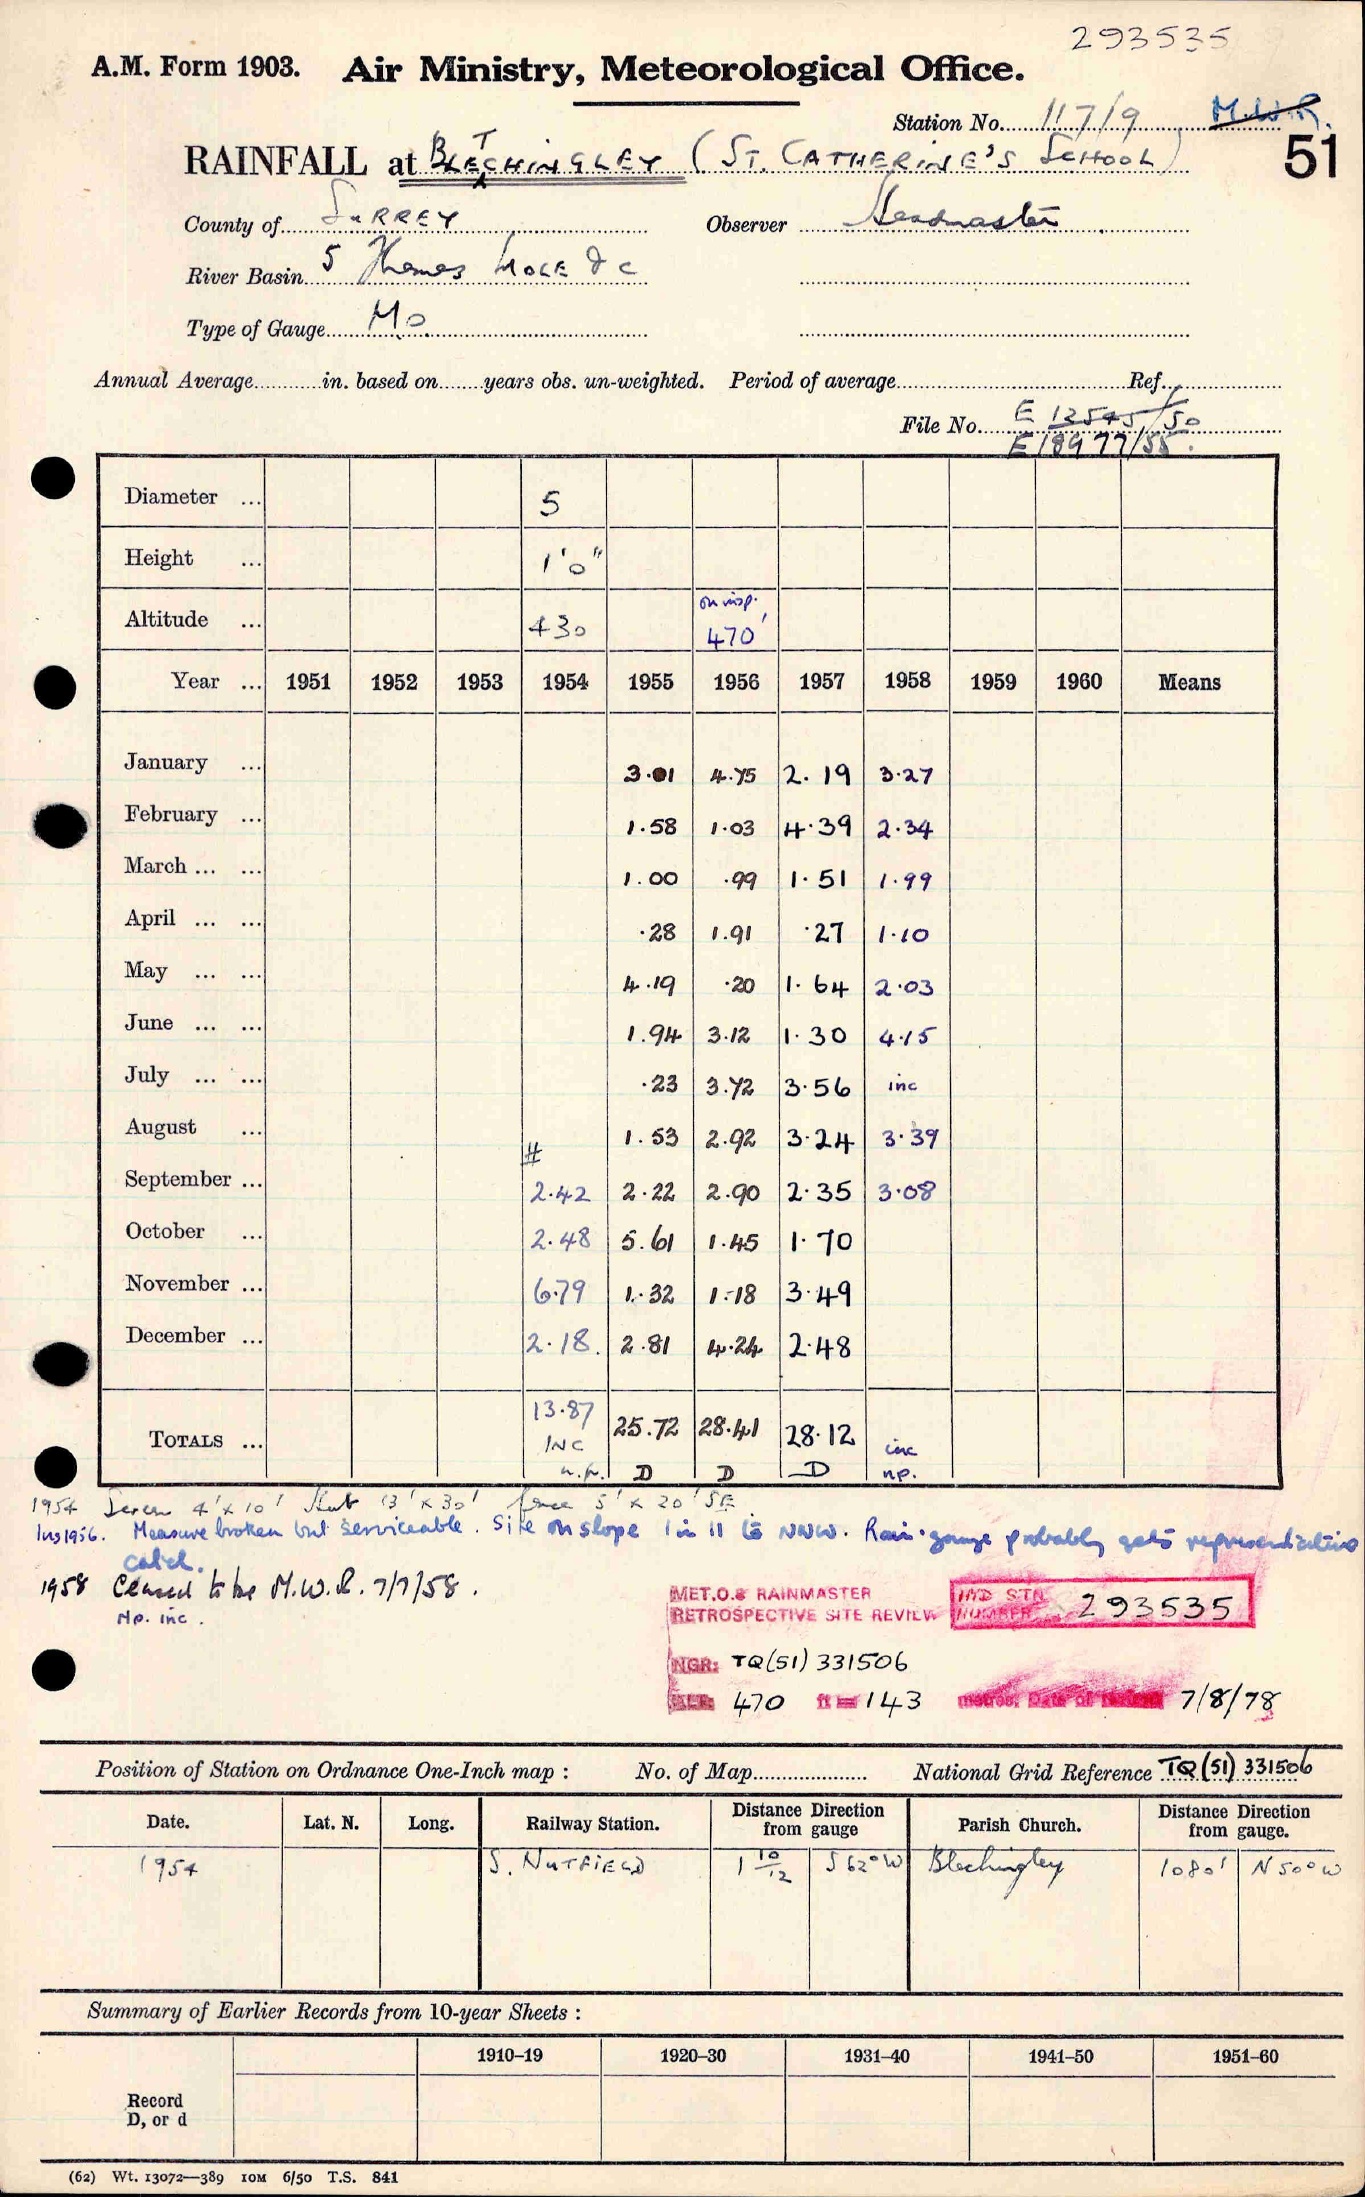 293535
A.M. Form 1903. Air Ministry, Meteorological Office.
Station No. 117/9 M.W.R.
51
RAINFALL at BLETCHINGLEY (ST. CATHERINE'S SCHOOL)
County of SURREY Observer Headmaster
River Basin 5 Thames MOLE &c
Type of Gauge Mo
Annual Average in. based on years obs. un-weighted. Period of average Ref.
File No. E 13545/50
E18977/55.
Diameter ... 5
Height ... 1'0"
Altitude ... 430 on insp. 470'
Year ... 1951 1952 1953 1954 1955 1956 1957 1958 1959 1960 Means
January ... 3.01 4.75 2.19 3.27
February ... 1.58 1.03 4.39 2.34
March ... ... 1.00 .99 1.51 1.99
April ... ... .28 1.91 .27 1.10
May ... ... 4.19 .20 1.64 2.03
June ... ... 1.94 3.12 1.30 4.15
July ... ... .23 3.72 3.56 inc
August ... # 1.53 2.92 3.24 3.39
September ... 2.42 2.22 2.90 2.35 3.08
October ... 2.48 5.61 1.45 1.70
November ... 6.79 1.32 1.18 3.49
December ... 2.18. 2.81 4.24 2.48
TOTALS ... 13.87 25.72 28.41 28.12 inc
INC n.p. D D D np.
1954 Screen 4'x10' Hut 13'x30' fence 5'x20' SE
Ins 1956. Measure broken but serviceable. Site on slope 1 in 11 to NNW. Rain-gauge probably gets representative
catch.
1958 Ceased to be M.W.R. 7/7/58.
Np. inc.
MET.O.8 RAINMASTER
RETROSPECTIVE SITE REVIEW
HYD STN NUMBER 293535
NGR: TQ(51) 331506
ALT: 470 ft = 143 metres. Date of 7/8/78
Position of Station on Ordnance One-Inch map : No. of Map National Grid Reference TQ(51) 331506
Date. Lat. N. Long. Railway Station. Distance Direction from gauge Parish Church. Distance Direction from gauge.
1954 S. NUTFIELD 1 10/12 S62°W Blechingley 1080' N50°W
Summary of Earlier Records from 10-year Sheets :
1910–19 1920–30 1931–40 1941–50 1951–60
Record
D, or d
(62) Wt. 13072—389 10M 6/50 T.S. 841